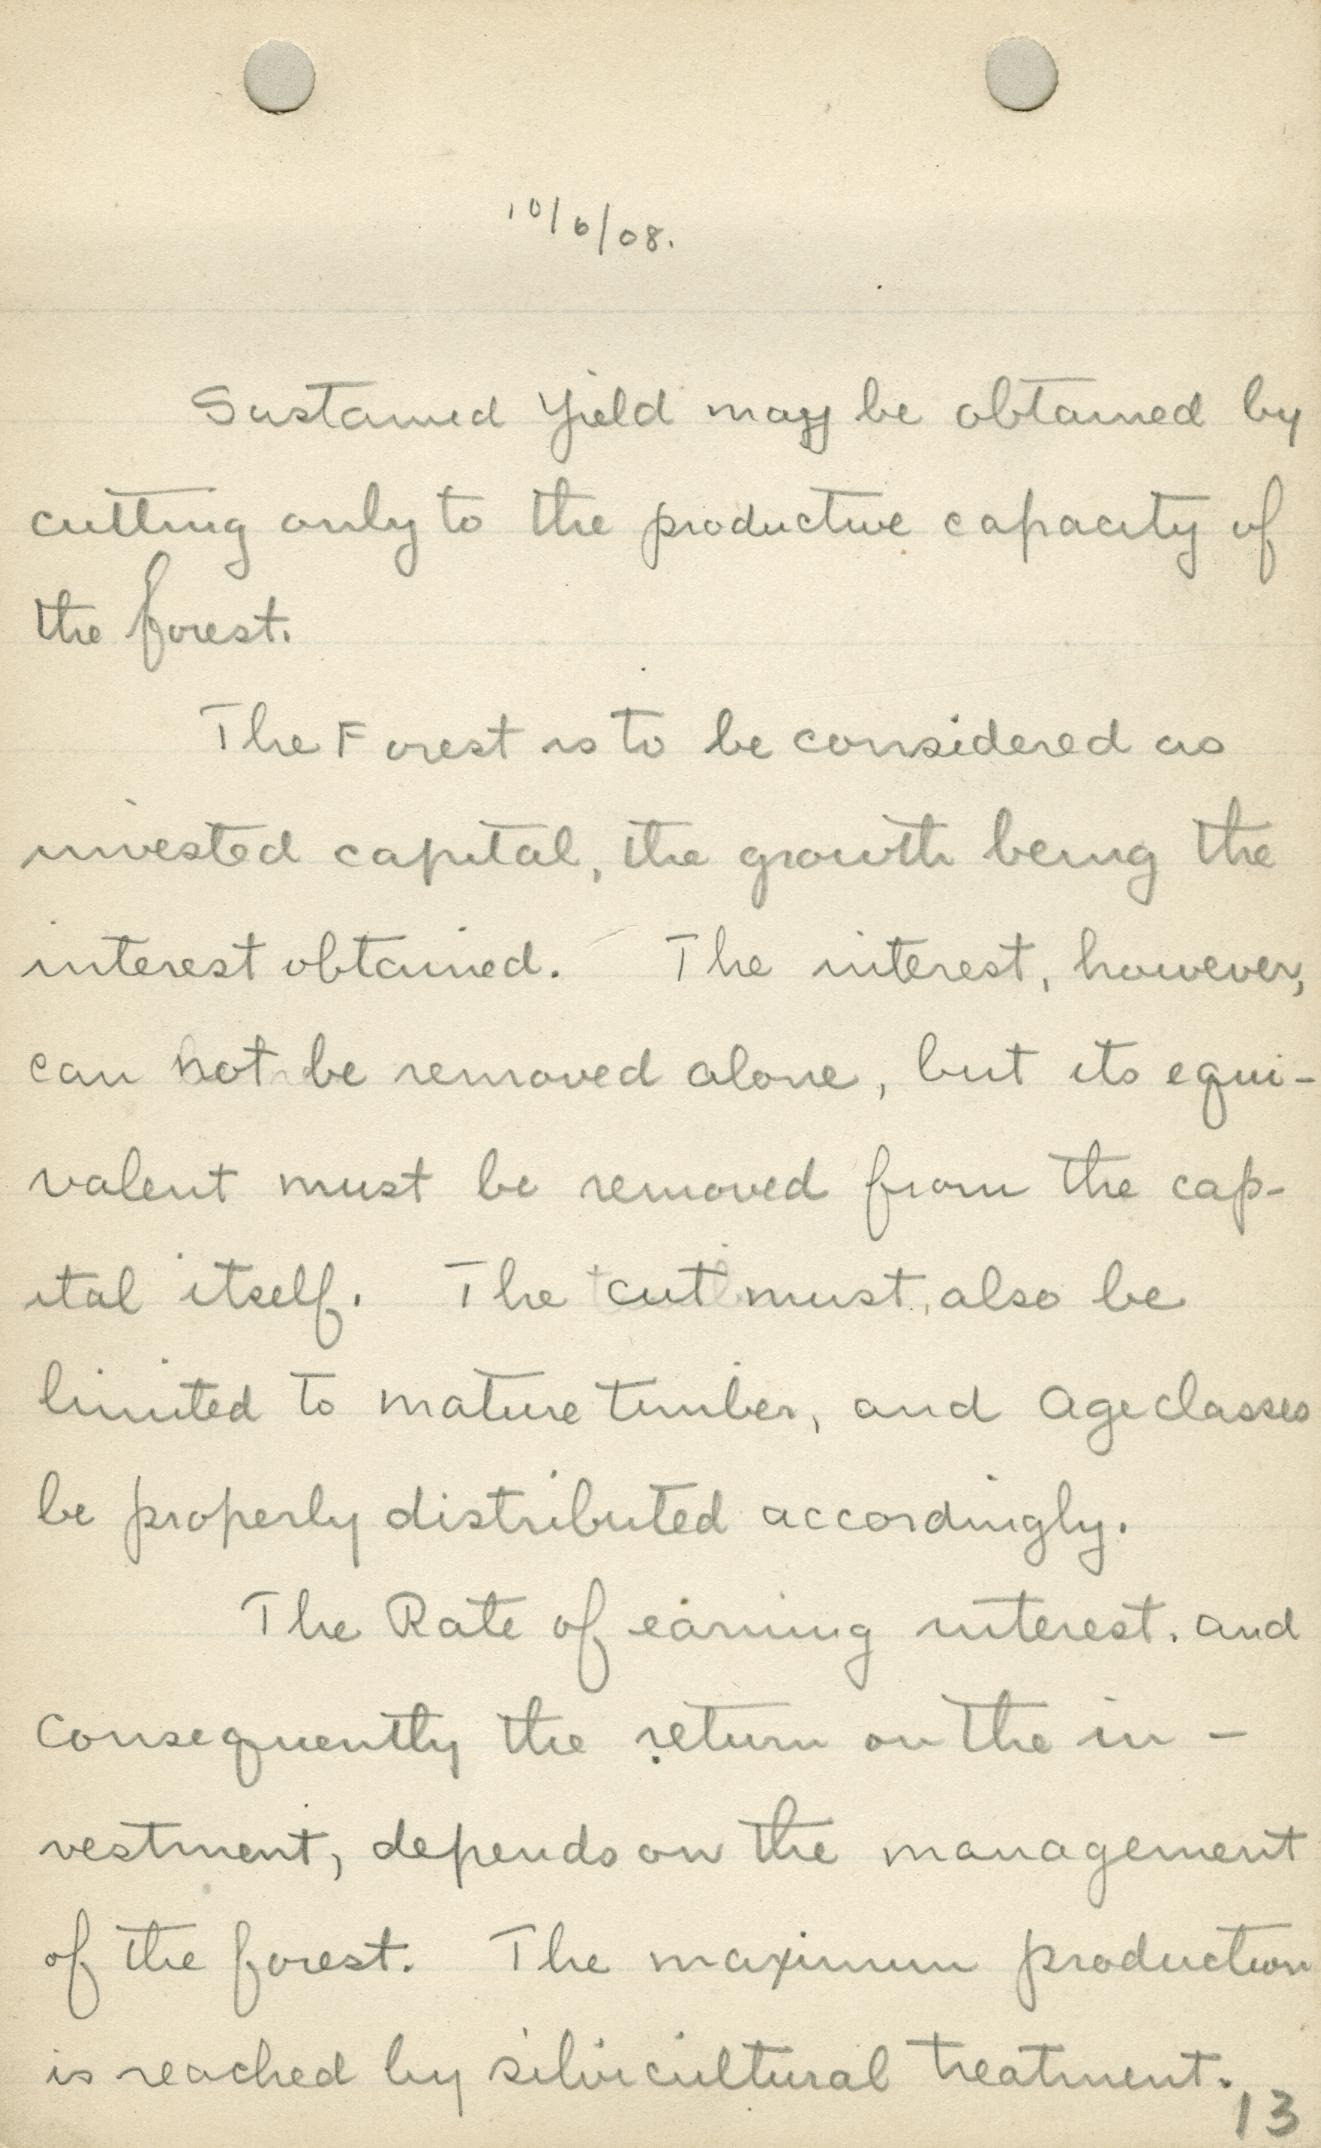 10/6/08.
Sustained Yield may be obtained by
cutting only to the productive capacity of
the forest.
The Forest is to be considered as
invested capital, the growth being the
interest obtained. The interest, however,
can not be removed alone, but its equi-
valent must be removed from the cap-
ital itself. The cut must also be
limited to mature timber, and age classes
be properly distributed accordingly.
The Rate of earning interest, and
consequently the return on the in-
vestment, depends on the management
of the forest. The maximum production
is reached by silvicultural treatment.
13